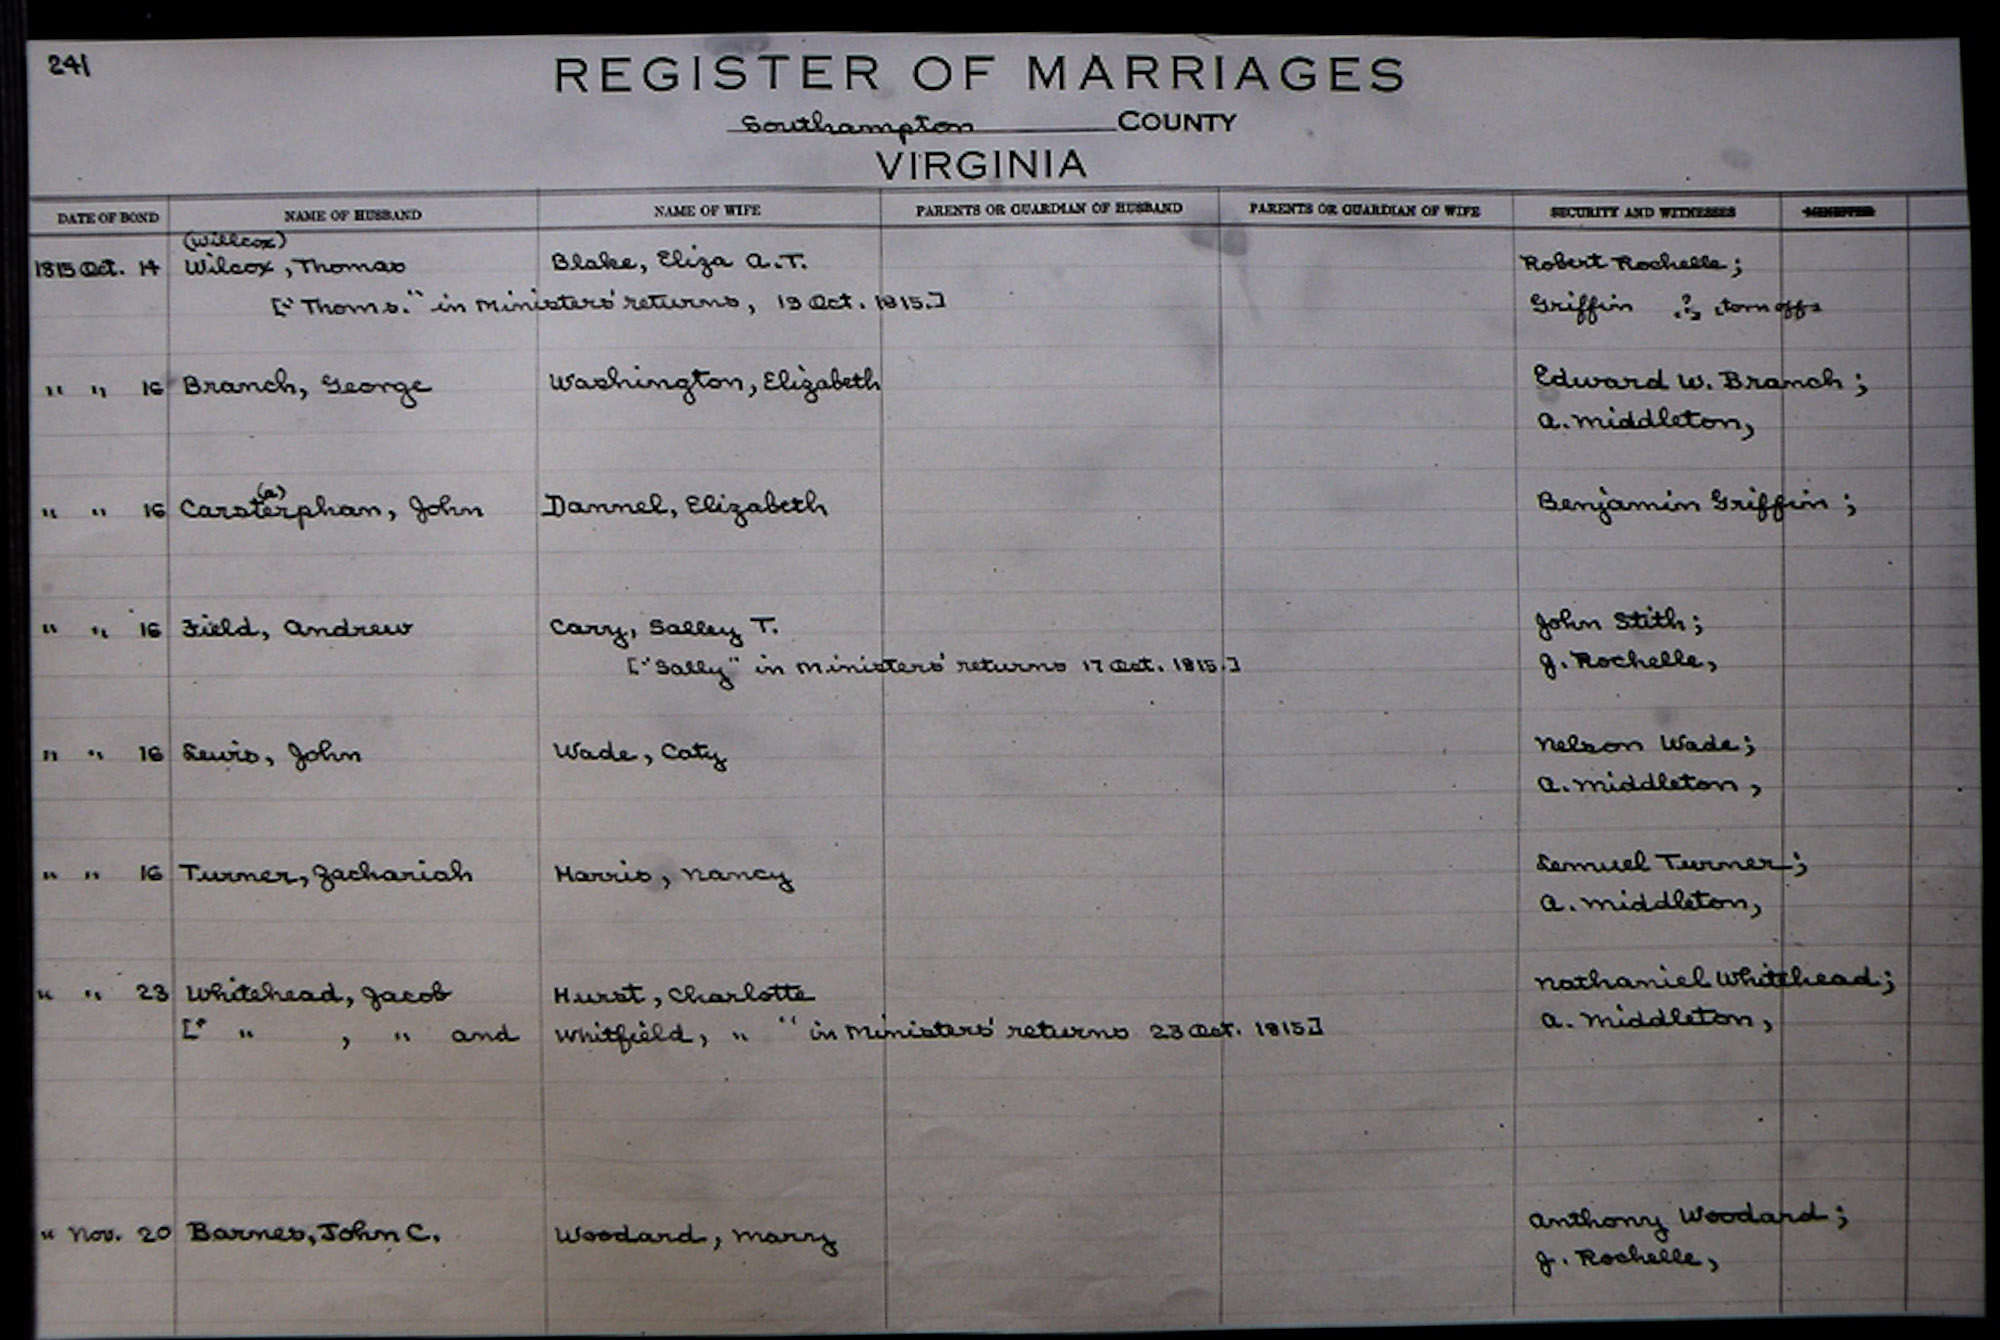 241
REGISTER OF MARRIAGES
Southampton COUNTY
VIRGINIA
DATE OF BOND NAME OF HUSBAND NAME OF WIFE PARENTS OR GUARDIAN OF HUSBAND PARENTS OR GUARDIAN OF WIFE SECURITY AND WITNESSES MINISTER
(Willcox)
1815 Oct. 14 Wilcox, Thomas Blake, Eliza A.T. Robert Rochelle;
["Thoms." in Ministers' returns, 19 Oct. 1815.] Griffin ? torn off
" " 16 Branch, George Washington, Elizabeth Edward W. Branch;
A. Middleton,
(a)
" " 16 Carsterphan, John Dannel, Elizabeth Benjamin Griffin;
" " 16 Field, Andrew Cary, Salley T. John Stith;
["Sally" in Ministers' returns 17 Oct. 1815.] J. Rochelle,
" " 16 Lewis, John Wade, Caty Nelson Wade;
A. Middleton,
" " 16 Turner, Zachariah Harris, Nancy Lemuel Turner;
A. Middleton,
" " 23 Whitehead, Jacob Hurst, Charlotte Nathaniel Whitehead;
[" " , " and Whitfield, " " in Ministers' returns 23 Oct. 1815] A. Middleton,
" Nov. 20 Barnes, John C. Woodard, Marry Anthony Woodard;
J. Rochelle,